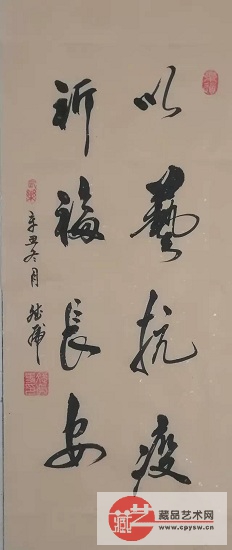 以藝抗疫
祈福長安
辛丑冬月
藏艺
藏品艺术网
www.cpysw.cn